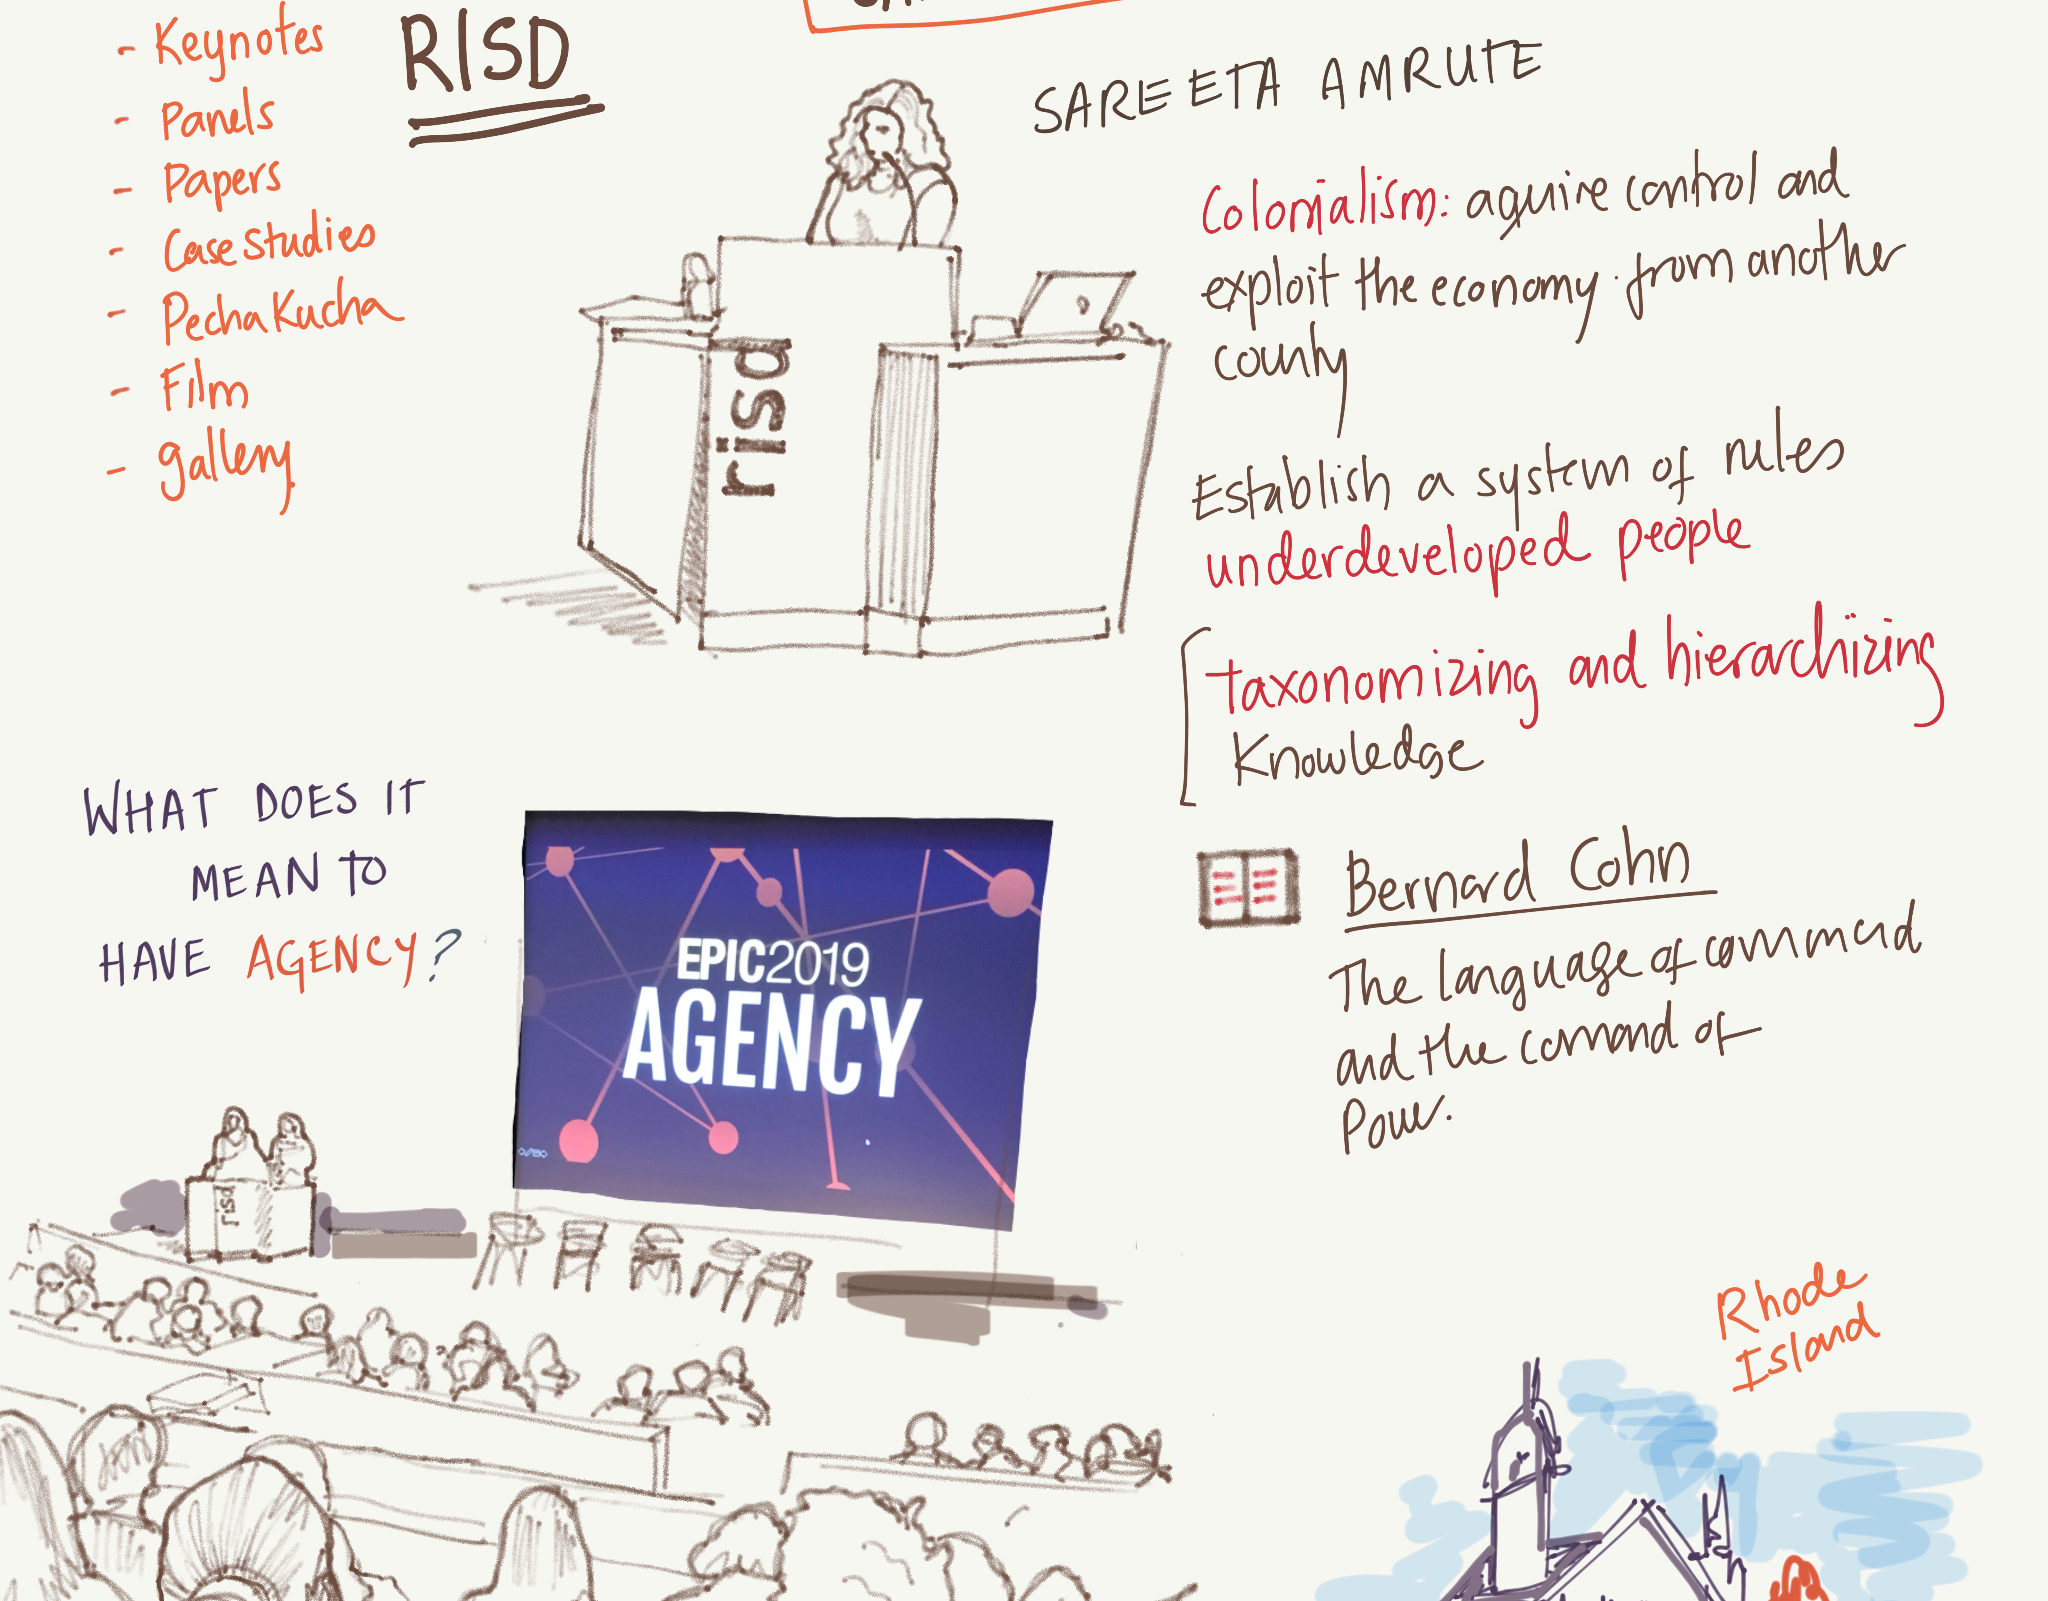 - Keynotes
- Panels
- Papers
- Case Studies
- Pecha Kucha
- Film
- gallery
RISD
SAREETA AMRUTE
risd
Colonialism: aquire control and
exploit the economy from another
county
Establish a system of rules
underdeveloped people
taxonomizing and hierarchizing
Knowledge
Bernard Cohn
The language of command
and the comand of
Power.
WHAT DOES IT
MEAN TO
HAVE AGENCY?
EPIC2019
AGENCY
risd
Rhode
Island